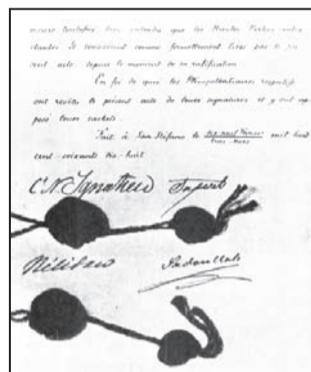 mesure toutefois bien entendu que les Hautes Parties contrac-
tantes se considèrent comme formellement liées par le pré-
sent acte depuis le moment de sa ratification.
En foi de quoi les Plénipotentiaires respectifs
ont revêtu le présent acte de leurs signatures et y ont ap-
posé leurs cachets.
Fait à San Stefano le dix-neuf Février mil huit
trois Mars
cent soixante dix-huit
Cte N. Ignatiew Safvet
Nélidow Sadoullah